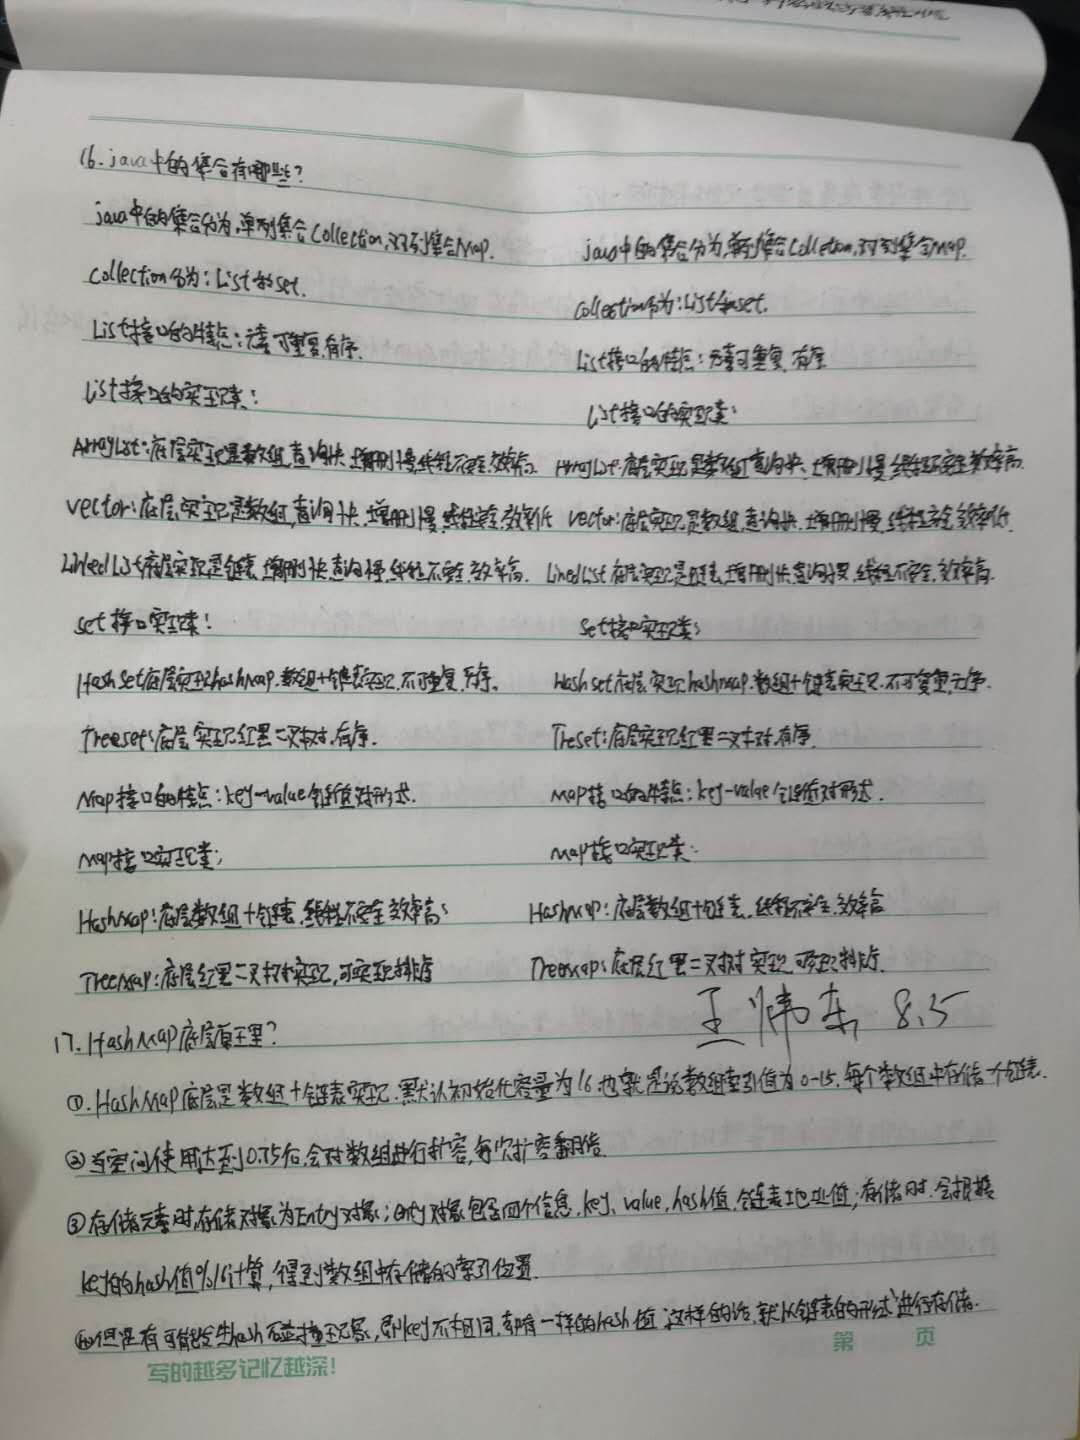 16. java中的集合有哪些?
java中的集合分为,单列集合Collection,双列集合Map.
Collection分为:List和set.
List接口的特点:元素可重复,有序.
List接口的实现类:
ArrayList:底层实现是数组,查询快,增删慢,线程不安全,效率高.
Vector:底层实现是数组,查询快,增删慢,线程安全,效率低
LinkedList底层实现是链表,增删快,查询慢,线程不安全,效率高.
set接口实现类:
HashSet底层实现hashmap.数组+链表实现,不可重复,无序.
Treeset:底层实现红黑二叉树,有序.
Map接口的特点:key-value键值对形式.
Map接口实现类:
HashMap:底层数组+链表,线程不安全,效率高;
TreeMap:底层红黑二叉树实现,可实现排序
java中的集合分为,单列集合Colletion,双列集合Map.
Collection分为:List和set.
List接口的特点:元素可重复,有序
List接口的实现类:
ArrayList:底层实现是数组,查询快,增删慢,线程不安全,效率高.
Vector:底层实现是数组,查询快,增删慢,线程安全,效率低.
LinedList底层实现是链表,增删快,查询慢,线程不安全,效率高.
Set接口实现类:
Hashset底层实现hashmap.数组+链表实现.不可重复,无序.
Treset:底层实现红黑二叉树,有序.
Map接口的特点:key-value键值对形式.
Map接口实现类:
HashMap:底层数组+链表,线程不安全,效率高
Treemap:底层红黑二叉树实现,可实现排序.
王炜东 8.5
17. HashMap底层原理?
①.HashMap底层是数组+链表实现.默认初始化容量为16,也就是说数组索引值为0-15,每个数组中存储一个链表.
②当空间使用达到0.75后,会对数组进行扩容,每次扩容翻倍.
③存储元素时,存储对象为Entry对象;entry对象包含四个信息,key、value,hash值,链表地址值;存储时,会根据
key的hash值%16计算,得到数组中存储的索引位置.
④但是有可能发生hash碰撞现象,即key不相同,却有一样的hash值,这样的话,就以链表的形式进行存储.
第 页
写的越多记忆越深!